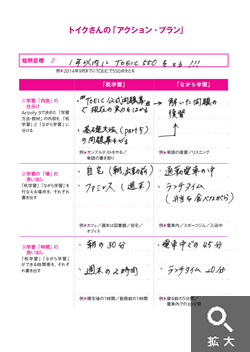 トイクさんの「アクション・プラン」
短期目標 // 1年以内に TOEIC 550 をとる!!!
例▶2014年9月までにTOEICで550点をとる
「机学習」
「ながら学習」
①学習「内容」の
仕分け
Activity 9で決めた「学習
方法・教材」の内容を、「机
学習」と「ながら学習」に
分ける
・TOEIC公式問題集
で現在の実力をはかる
・基礎文法 (part5)
の問題集をやる
例▶サンプルテストをやる/
単語の書き取り
・解いた問題の
復習
例▶単語の復習/リスニング
②学習の「場」の
洗い出し
「机学習」「ながら学習」を
行なえる場所を、それぞれ
書き出す
・自宅 (朝、出勤前)
・ファミレス (週末)
例▶カフェ/週末は図書館/自宅/
オフィス
・通勤電車の中
・ランチタイム
(弁当を食べながら)
例▶電車内/スポーツジム/入浴中
③学習「時間」の
洗い出し
「机学習」「ながら学習」
ができる時間帯を、それぞ
れ書き出す
・朝の30分
・週末の2時間
例▶帰宅後の1時間/始業前の1時間
・電車中での45分
・ランチタイム 20分
例▶寝る前の5分間/
拡大